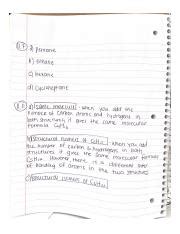 a) pentane
b) ethane
c) hexane
d) cyclopentane
a) Same molecule - when you add the
number of carbon atoms and hydrogens in
both structures it gives the same molecular
formula
b) Structural isomers of - when you add
the number of carbon & hydrogens in both
structures it gives the same molecular formula
However, there is a different order
of bonding of atoms in the two structures
c) Structural isomers of